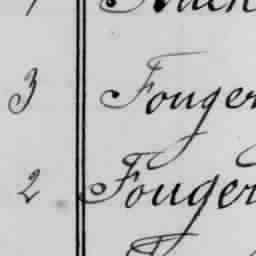 3 Fouger
2 Fouger